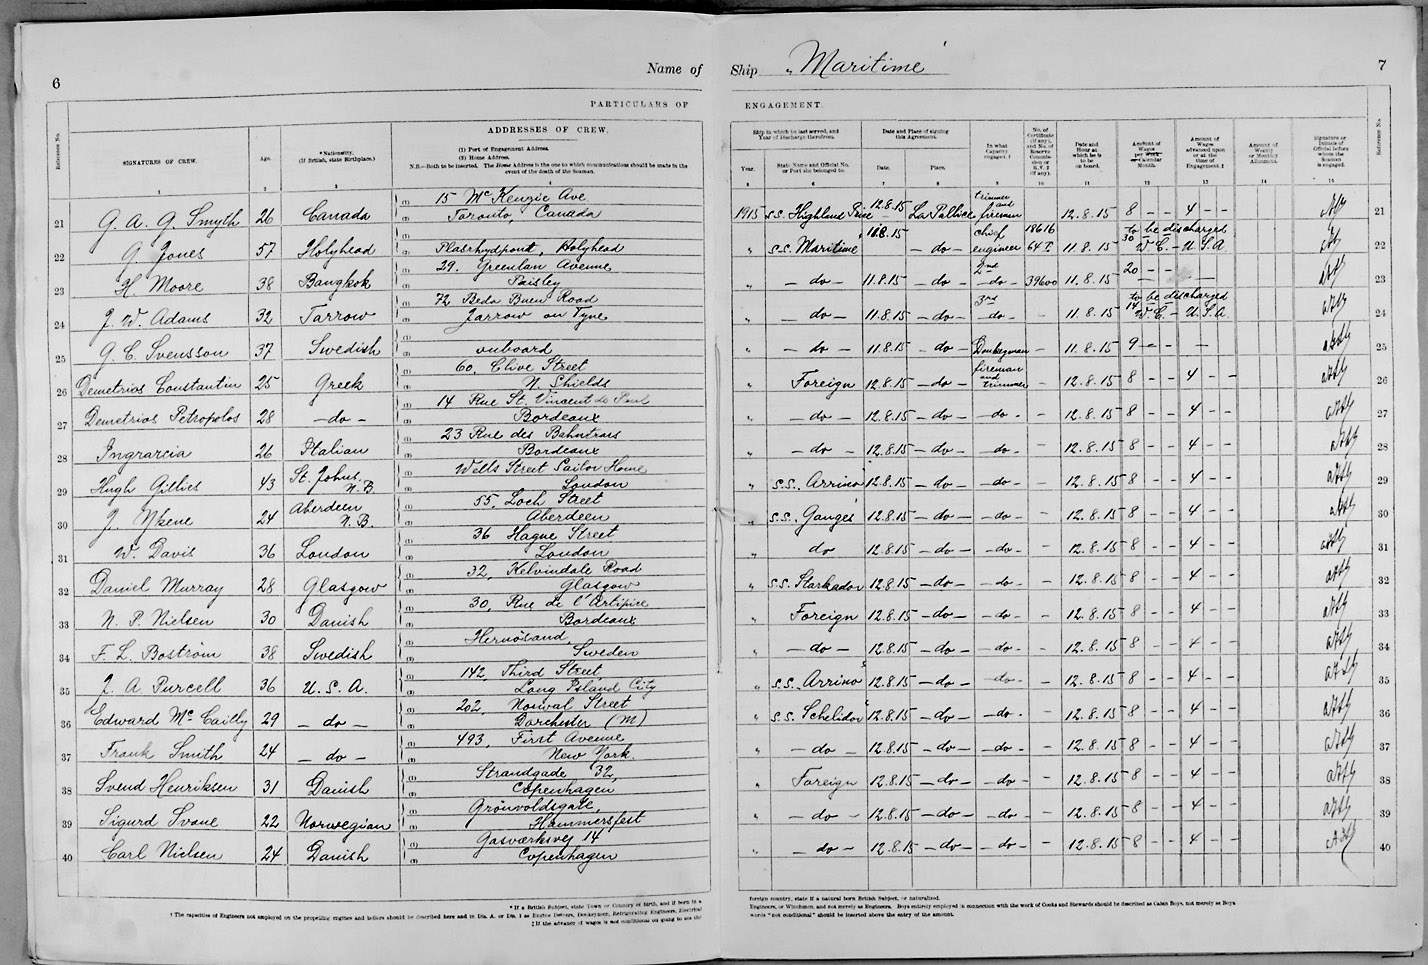 6
Name of Ship "Maritime"
7
PARTICULARS OF ENGAGEMENT.
Reference No.
SIGNATURES OF CREW.
Age.
*Nationality.
(If British, state Birthplace.)
ADDRESSES OF CREW.
(1) Port of Engagement Address.
(2) Home Address.
N.B.—Both to be inserted. The Home Address is the one to which communications should be made in the
event of the death of the Seaman.
Ship in which he last served, and
Year of Discharge therefrom.
Year.
State Name and Official No.
or Port she belonged to.
Date and Place of signing
this Agreement.
Date.
Place.
In what
Capacity
engaged. †
Date and
Hour at
which he is
to be
on board.
Amount of
Wages
per Week
Calendar
Month.
Amount of
Wages
advanced upon
or at the
time of
Engagement. ‡
Amount of
Weekly
or Monthly
Allotment.
Signature or
Initials of
Official before
whom the
Seaman
is engaged.
Reference No.
21 G. A. G. Smyth 26 Canada 15 McKenzie Ave Toronto, Canada 1915 s.s. Highland 12.8.15 La Pallice trimmer and fireman 12.8.15 8 - - 4 - - 21
22 G Jones 57 Holyhead Holyhead " s.s. Maritime 11.8.15 - do - chief engineer 18616 11.8.15 30 to be discharged W. C. - U. S. A 22
23 H Moore 38 Bangkok 29. Greenlan Avenue Paisley " - do - 11.8.15 - do - 2nd - do - 39600 11.8.15 20 - - 23
24 J. W. Adams 32 Jarrow 72 Beda Buen Road Jarrow on Tyne " - do - 11.8.15 - do - 3rd - do - - 11.8.15 14 to be discharged W. C. - U. S. A. 24
25 G. C. Svensson 37 Swedish onboard " - do - 11.8.15 - do - Donkeyman - 11.8.15 9 - - - 25
26 Demetrios Constantin 25 Greek 60, Clive Street N. Shields " Foreign 12.8.15 - do - fireman and trimmer - 12.8.15 8 - - 4 - - 26
27 Demetrios Petropolos 28 - do - 14 Rue St. Vincent de Paul Bordeaux " - do - 12.8.15 - do - - do - - 12.8.15 8 - - 4 - - 27
28 Ingrarcia 26 Italian 23 Rue des Bordeaux " - do - 12.8.15 - do - - do - - 12.8.15 8 - - 4 - - 28
29 Hugh Gillies 43 St. Johns, N.B. Wells Street Sailor Home London " s.s. Arrino 12.8.15 - do - - do - - 12.8.15 8 - - 4 - - 29
30 J. 24 Aberdeen N.B. 55, Loch Street Aberdeen " s.s. Ganges 12.8.15 - do - - do - - 12.8.15 8 - - 4 - - 30
31 W. Davis 36 London 36 Hague Street London " do 12.8.15 - do - - do - - 12.8.15 8 - - 4 - - 31
32 Daniel Murray 28 Glasgow 32, Kelvindale Road Glasgow " s.s. 12.8.15 - do - - do - - 12.8.15 8 - - 4 - - 32
33 N. P. Nielsen 30 Danish 30, Rue de l'Artifice Bordeaux " Foreign 12.8.15 - do - - do - - 12.8.15 8 - - 4 - - 33
34 F. L. Boström 38 Swedish Hernösand, Sweden " - do - 12.8.15 - do - - do - - 12.8.15 8 - - 4 - - 34
35 J. A Purcell 36 U. S. A. 142, Third Street, Long Island City " s.s. Arrino 12.8.15 - do - - do - - 12.8.15 8 - - 4 - - 35
36 Edward McCailly 29 - do - 202, Norwal Street Dorchester (M) " s.s. Schelidor 12.8.15 - do - - do - - 12.8.15 8 - - 4 - - 36
37 Frank Smith 24 - do - 493, First Avenue New York. " - do - 12.8.15 - do - - do - - 12.8.15 8 - - 4 - - 37
38 Svend Henriksen 31 Danish Strandgade 32, Copenhagen " Foreign 12.8.15 - do - - do - - 12.8.15 8 - - 4 - - 38
39 Sigurd Svane 22 Norwegian Grönvoldsgate, Hammersfest " - do - 12.8.15 - do - - do - - 12.8.15 8 - - 4 - - 39
40 Carl Nielsen 24 Danish Gasværksvej 14 Copenhagen " - do - 12.8.15 - do - - do - - 12.8.15 8 - - 4 - - 40
* If a British Subject, state Town or Country of birth, and if born in a
foreign country, state if a natural born British Subject, or naturalized.
† The capacities of Engineers not employed on the propelling engines and boilers should be described here and in Dis. A. or Dis. 1 as Engine Drivers, Donkeymen, Refrigerating Engineers, Electrical
Engineers, or Winchmen, and not merely as Engineers. Boys entirely employed in connection with the work of Cooks and Stewards should be described as Cabin Boys, not merely as Boys
‡ If the advance of wages is not conditional on going to sea the
words "not conditional" should be inserted above the entry of the amount.